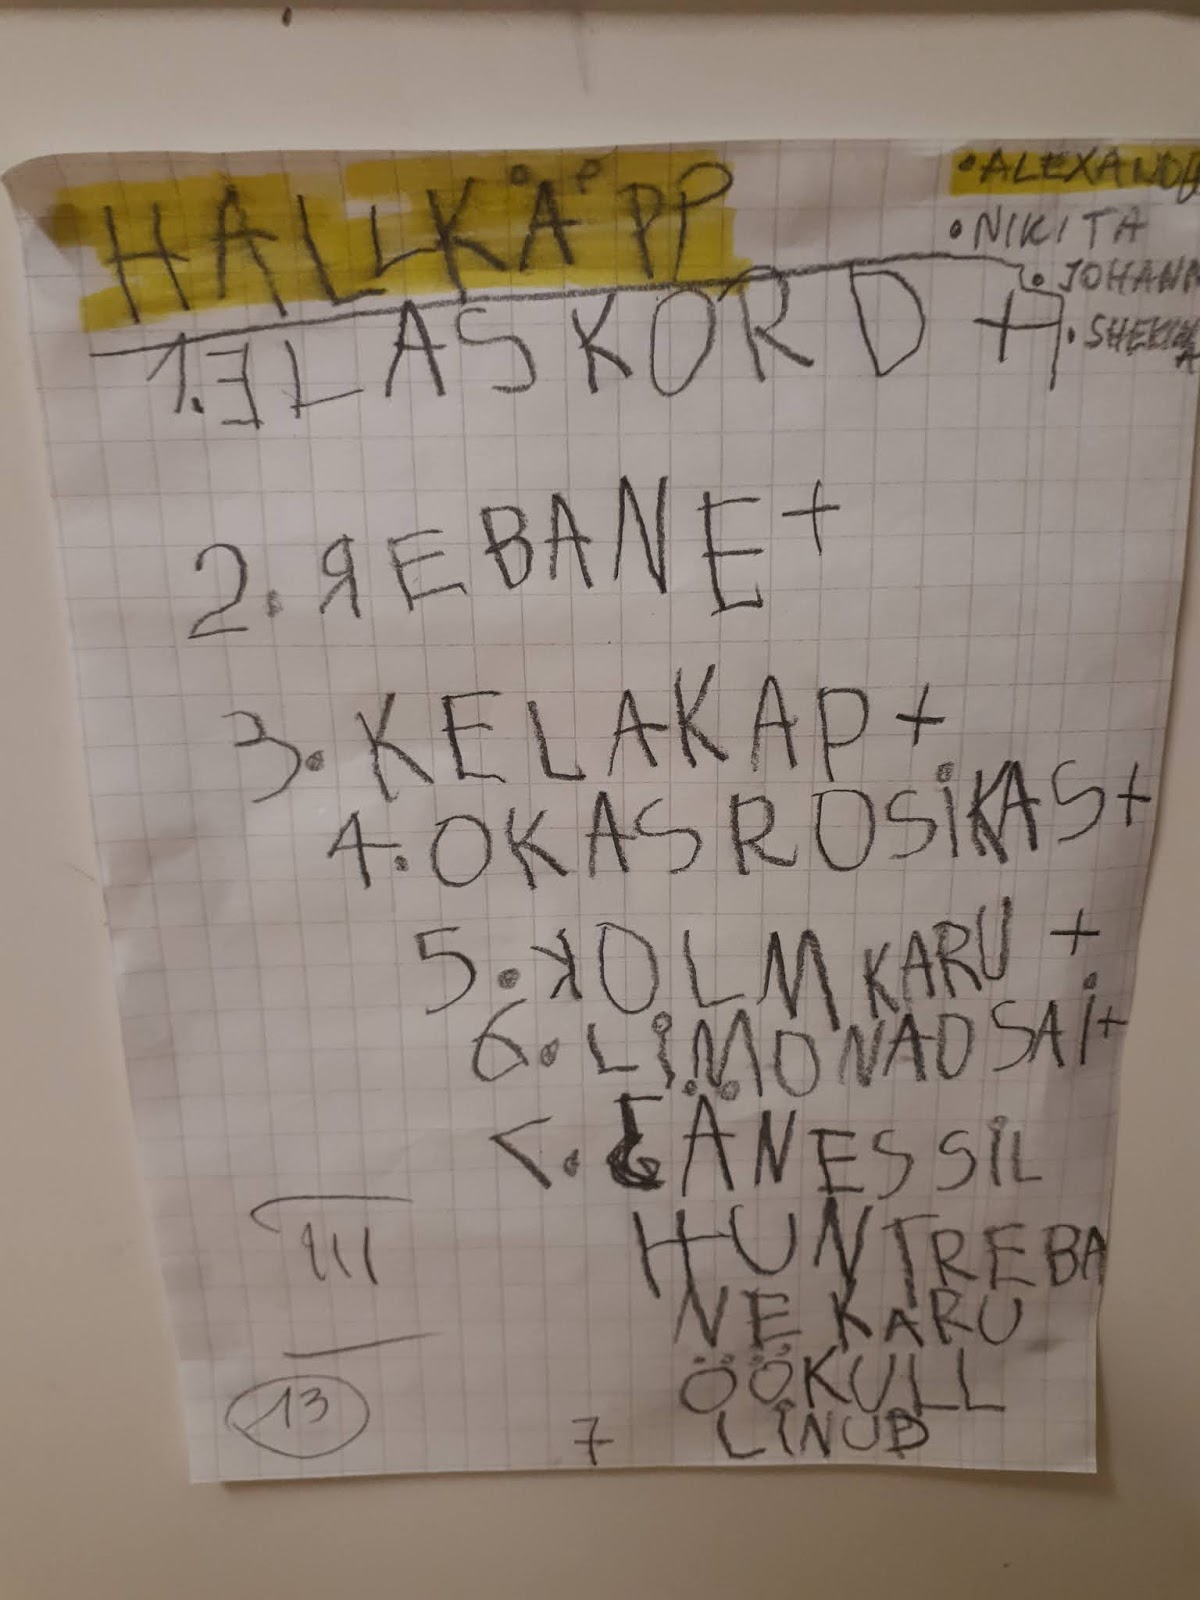 HALLKÄPP
• ALEXANDE
• NIKITA
• JOHANN
• SHEKIN
A
1. ELASKORD +
2. REBANE +
3. KELAKAP +
4. OKASROSIKAS +
5. KOLM KARU +
6. LIMONAD SAI +
7. JÄNES SIL
HUNT REBA
NE KARU
ÖÖKULL
LINUD
III
13
7